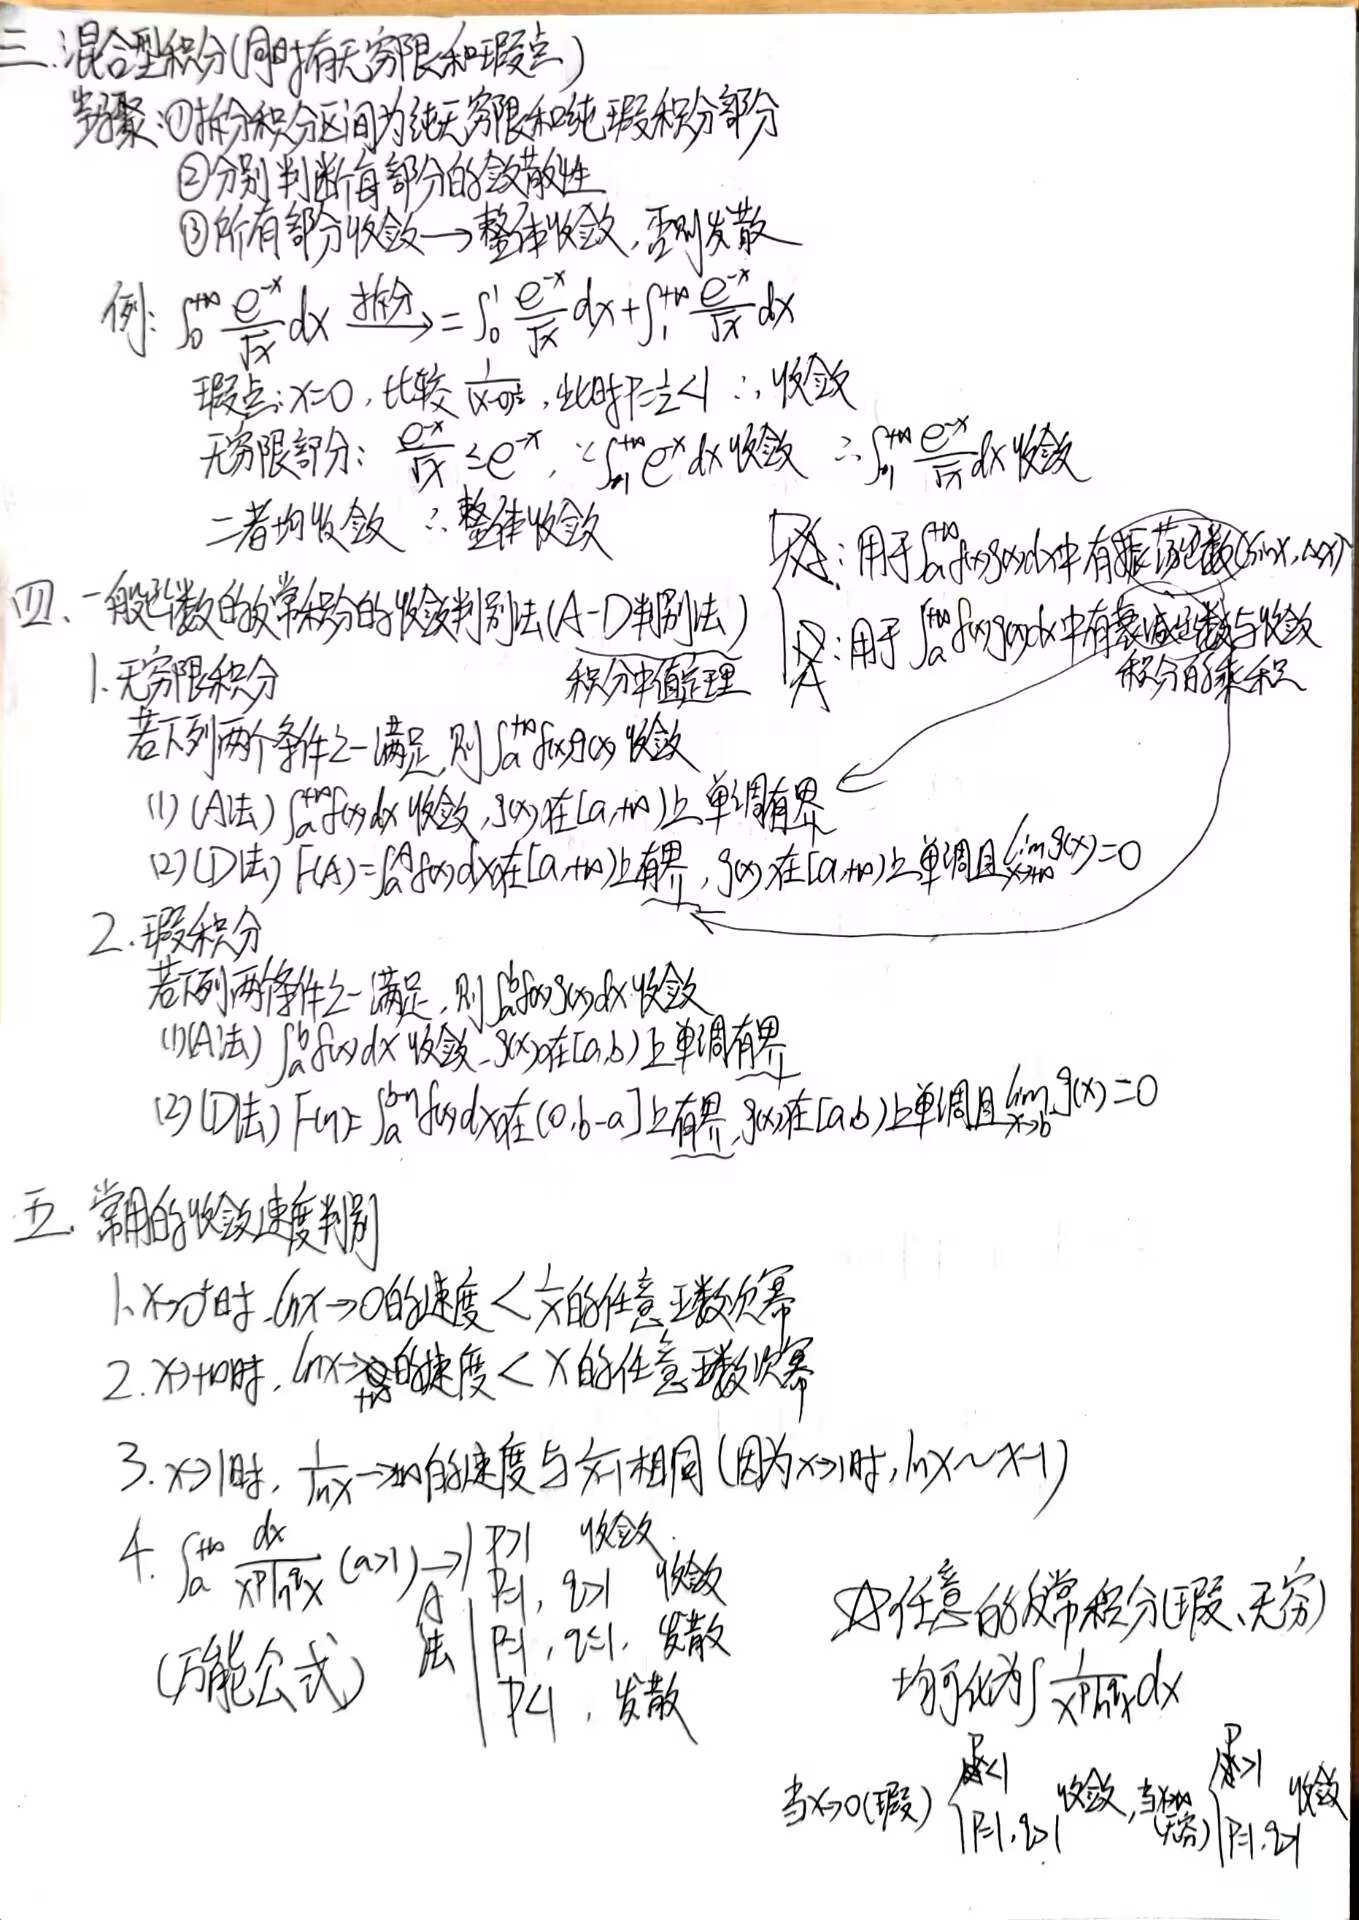 三.混合型积分(同时有无穷限和瑕点)
步骤:①拆分积分区间为纯无穷限和纯瑕积分部分
②分别判断每部分的敛散性
③所有部分收敛→整体收敛,否则发散
例: ∫₀^{+∞} e^{-x}/√x dx 拆分→ = ∫₀¹ e^{-x}/√x dx + ∫₁^{+∞} e^{-x}/√x dx
瑕点:x=0, 比较 1/(x-0)^{1/2}, 此时P=1/2<1 ∴收敛
无穷限部分: e^{-x}/√x ≤ e^{-x}, ∵∫₁^{+∞} e^{-x}dx收敛 ∴∫₁^{+∞} e^{-x}/√x dx收敛
二者均收敛 ∴整体收敛
: 用于∫ₐ^{+∞} f(x)g(x)dx中有振荡函数(sinx,
: 用于∫ₐ^{+∞} f(x)g(x)dx中有衰减函数与收敛
积分的乘积
四.一般函数的反常积分的收敛判别法(A-D判别法)
积分中值定理
1.无穷限积分
若下列两个条件之一满足,则∫ₐ^{+∞} f(x)g(x) 收敛
(1) (A法) ∫ₐ^{+∞} f(x)dx 收敛,g(x)在[a,+∞)上单调有界
(2) (D法) F(A)=∫ₐ^A f(x)dx在[a,+∞)上有界, g(x)在[a,+∞)上单调且lim_{x→+∞} g(x)=0
2.瑕积分
若下列两个条件之一满足,则∫ₐᵇ f(x)g(x)dx收敛
(1)(A法) ∫ₐᵇ f(x)dx 收敛,g(x)在[a,b)上单调有界
(2) (D法) F(η)=∫ₐ^{b-η} f(x)dx在(0,b-a]上有界,g(x)在[a,b)上单调且lim_{x→b⁻} g(x)=0
五.常用的收敛速度判别
1.x→0⁺时,lnx→0的速度<1/x的任意正数次幂
2.x→+∞时,lnx→+∞的速度<x的任意正数次幂
3.x→1时, 1/lnx→∞的速度与1/(x-1)相同(因为x→1时,lnx~x-1)
4. ∫ₐ^{+∞} dx/(x^p ln^q x) (a>1) →
A法
P>1 收敛
P=1, q>1 收敛
P=1, q≤1, 发散
P<1, 发散
(万能公式)
☆任意的反常积分(瑕、无穷)
均可化为∫ 1/(x^p ln^q x) dx
当x→0(瑕) { P<1
P=1, q>1 收敛, 当x→∞(无穷) { P>1
P=1, q>1 收敛